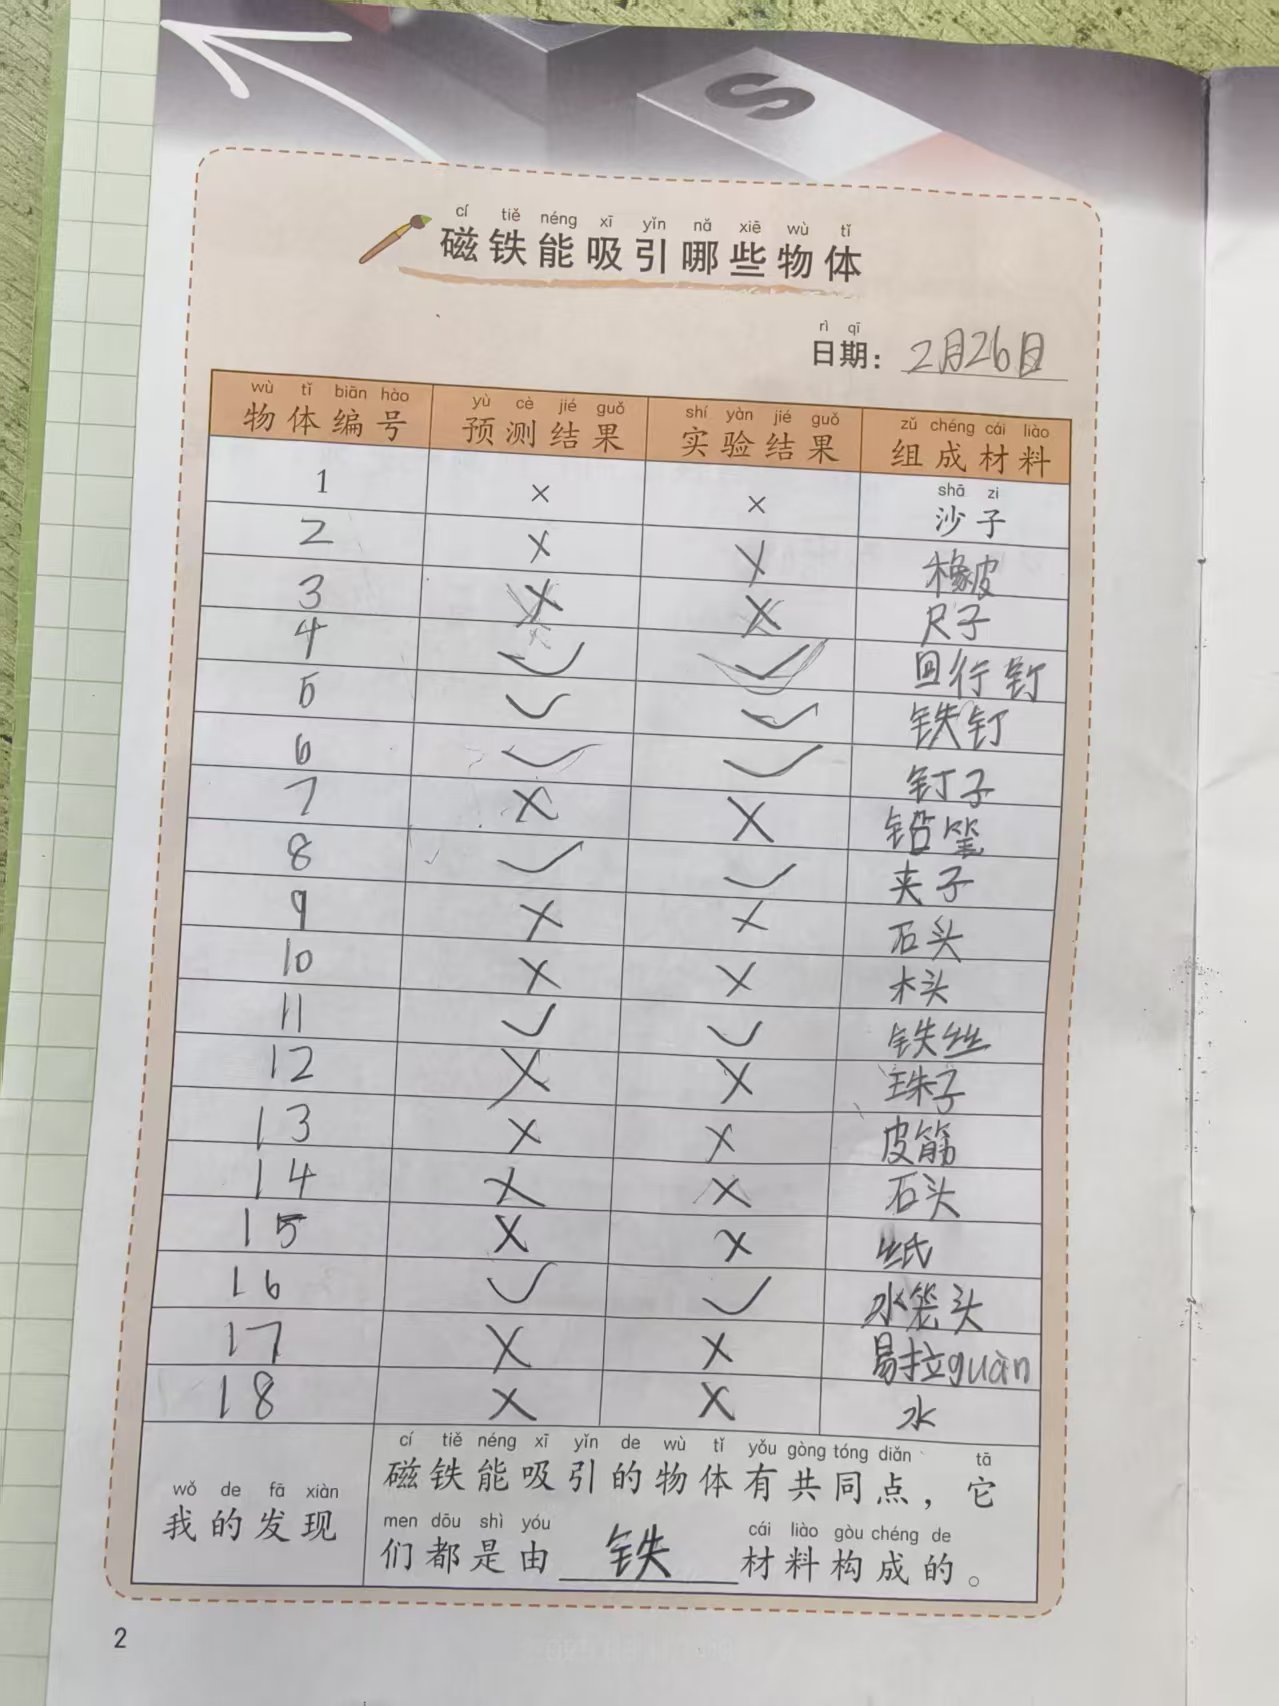 S
cí tiě néng xī yǐn nǎ xiē wù tǐ
磁铁能吸引哪些物体
rì qī
日期: 2月26日
wù tǐ biān hào yù cè jié guǒ shí yàn jié guǒ zǔ chéng cái liào
物体编号 预测结果 实验结果 组成材料
shā zi
1 × × 沙子
2 × × 橡皮
3 × × 尺子
4 ✓ ✓ 回行钉
5 ✓ ✓ 铁钉
6 ✓ ✓ 钉子
7 × × 铅笔
8 ✓ ✓ 夹子
9 × × 石头
10 × × 木头
11 ✓ ✓ 铁丝
12 × × 珠子
13 × × 皮筋
14 × × 石头
15 × × 纸
16 ✓ ✓ 水笼头
17 × × 易拉guàn
18 × × 水
cí tiě néng xī yǐn de wù tǐ yǒu gòng tóng diǎn tā
磁铁能吸引的物体有共同点，它
wǒ de fā xiàn
我的发现
men dōu shì yóu cái liào gòu chéng de
们都是由 铁 材料构成的。
2